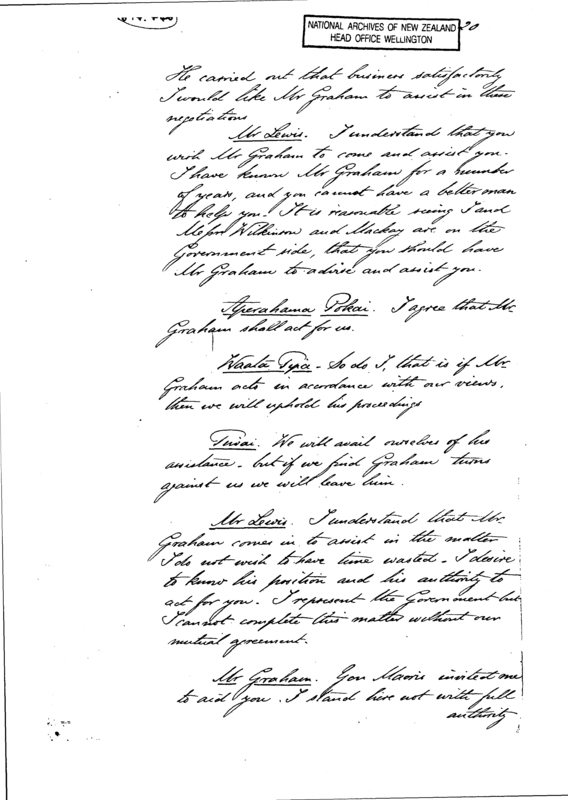 NATIONAL ARCHIVES OF NEW ZEALAND
HEAD OFFICE WELLINGTON
20
He carried out that business satisfactorily
I would like Mr Graham to assist in these
negotiations
Mr Lewis. I understand that you
wish Mr Graham to come and assist you.
I have known Mr Graham for a number
of years, and you cannot have a better man
to help you. It is reasonable seeing I and
Messrs Wilkinson and Mackay are on the
Government side, that you should have
Mr Graham to advise and assist you.
Aperahama Pokai. I agree that Mr.
Graham shall act for us.
Waata Tipa - So do I, that is if Mr.
Graham acts in accordance with our views,
then we will uphold his proceedings
We will avail ourselves of his
assistance - but if we find Graham turns
against us we will leave him.
Mr Lewis. I understand that Mr.
Graham comes in to assist in the matter
I do not wish to have time wasted - I desire
to know his position and his authority to
act for you. I represent the Government but
I cannot complete this matter without our
mutual agreement.
Mr Graham. You Maoris invited me
to aid you. I stand here not with full
authority